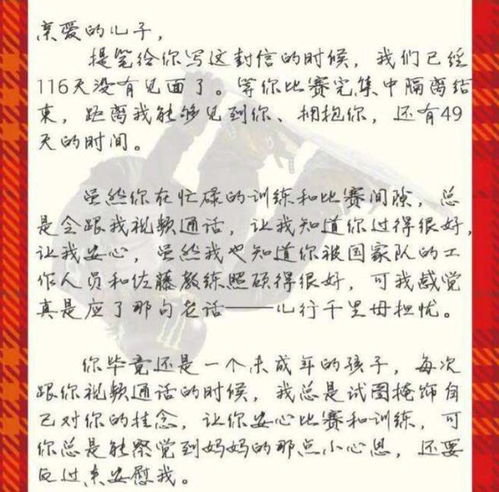 亲爱的儿子,
提笔给你写这封信的时候，我们已经
116天没有见面了。等你比赛完集中隔离结
束，距离我能够见到你、拥抱你，还有49
天的时间。
虽然你在忙碌的训练和比赛间隙，总
是会跟我视频通话，让我知道你过得很好，
让我安心，虽然我也知道你被国家队的工
作人员和佐藤教练照顾得很好，可我感觉
真是应了那句老话——儿行千里母担忧。
你毕竟还是一个未成年的孩子，每次
跟你视频通话的时候，我总是试图掩饰自
己对你的挂念，让你安心比赛和训练，可
你总是能察觉到妈妈的那点小心思，还要
反过来安慰我。